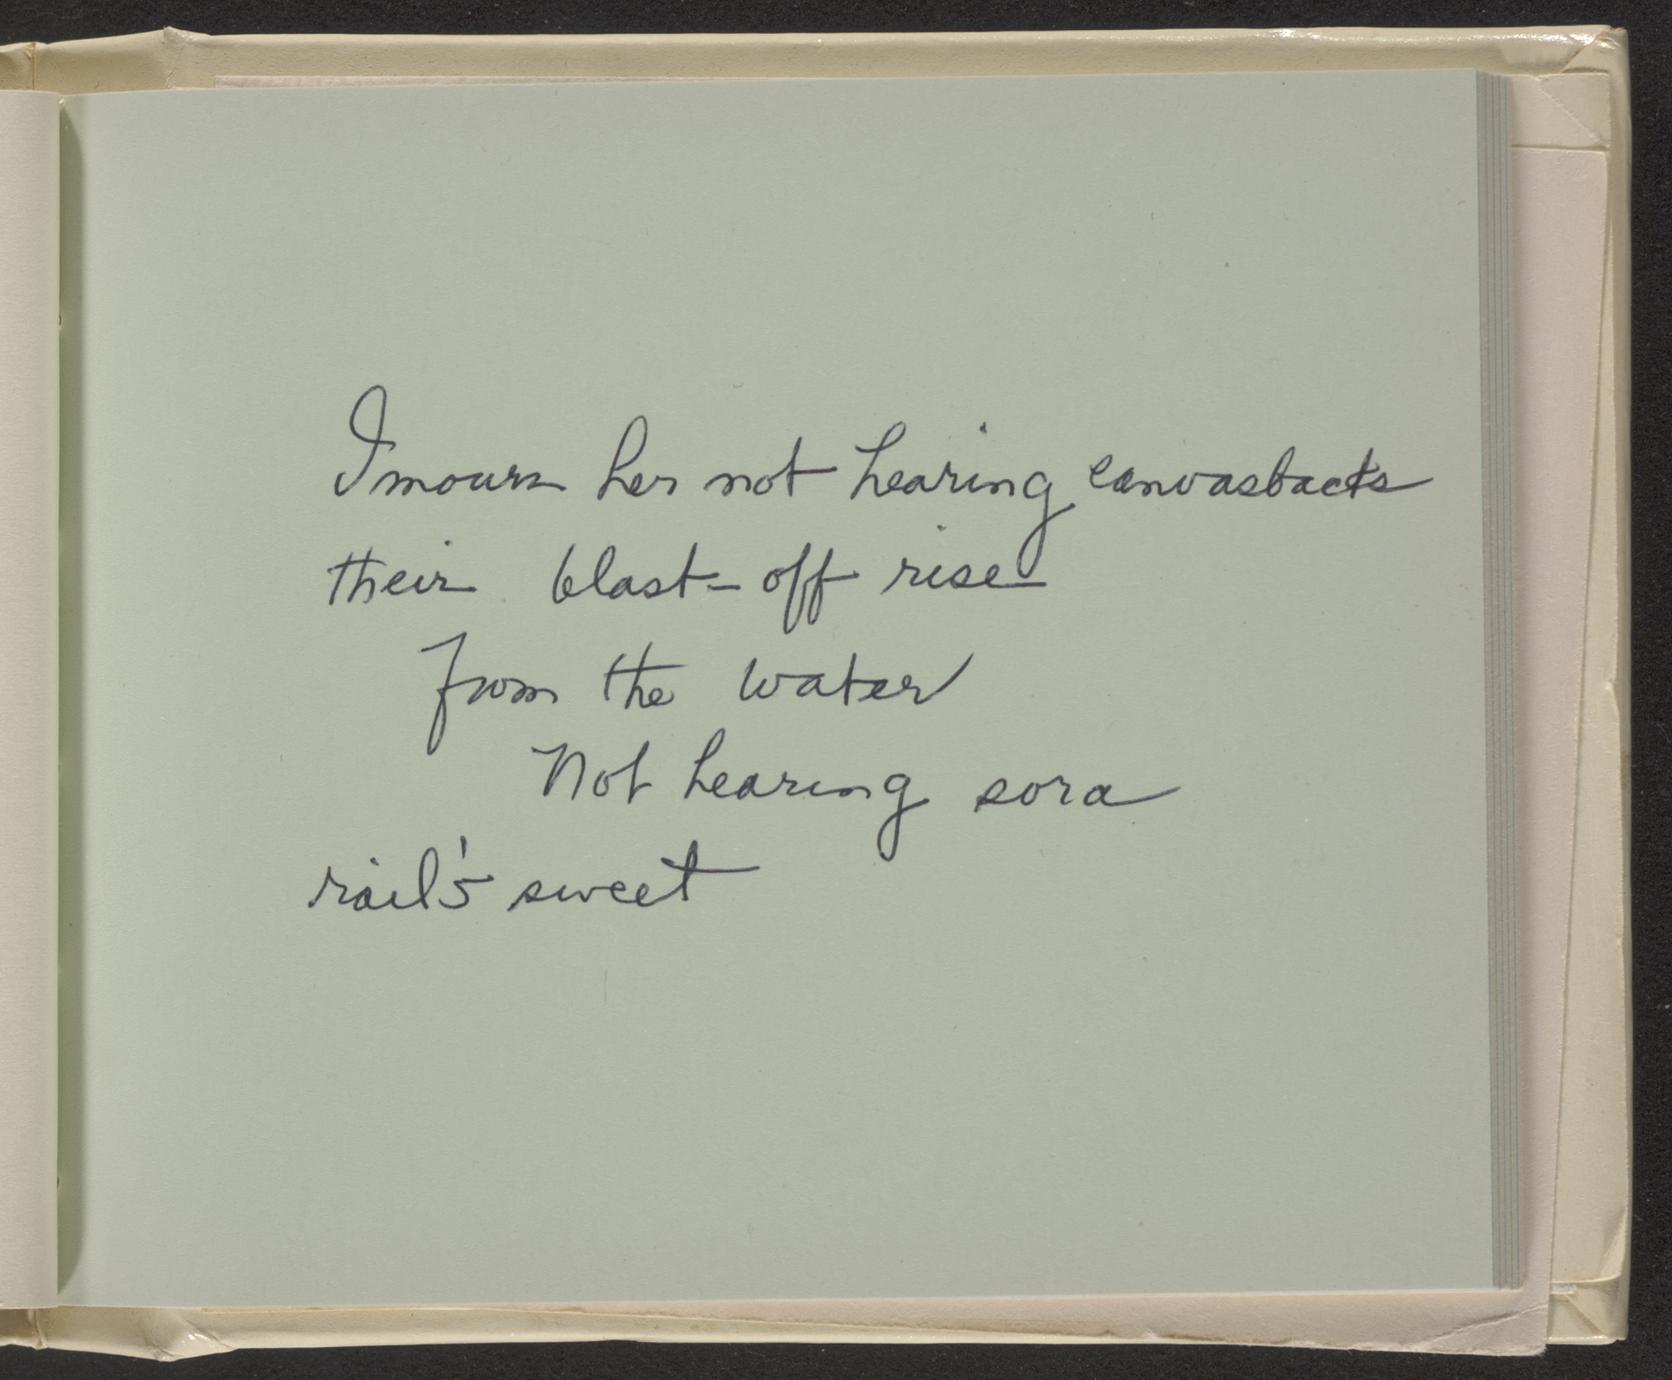 I mourn her not hearing canvasbacks
their blast-off rise
from the water
Not hearing sora
rail's sweet